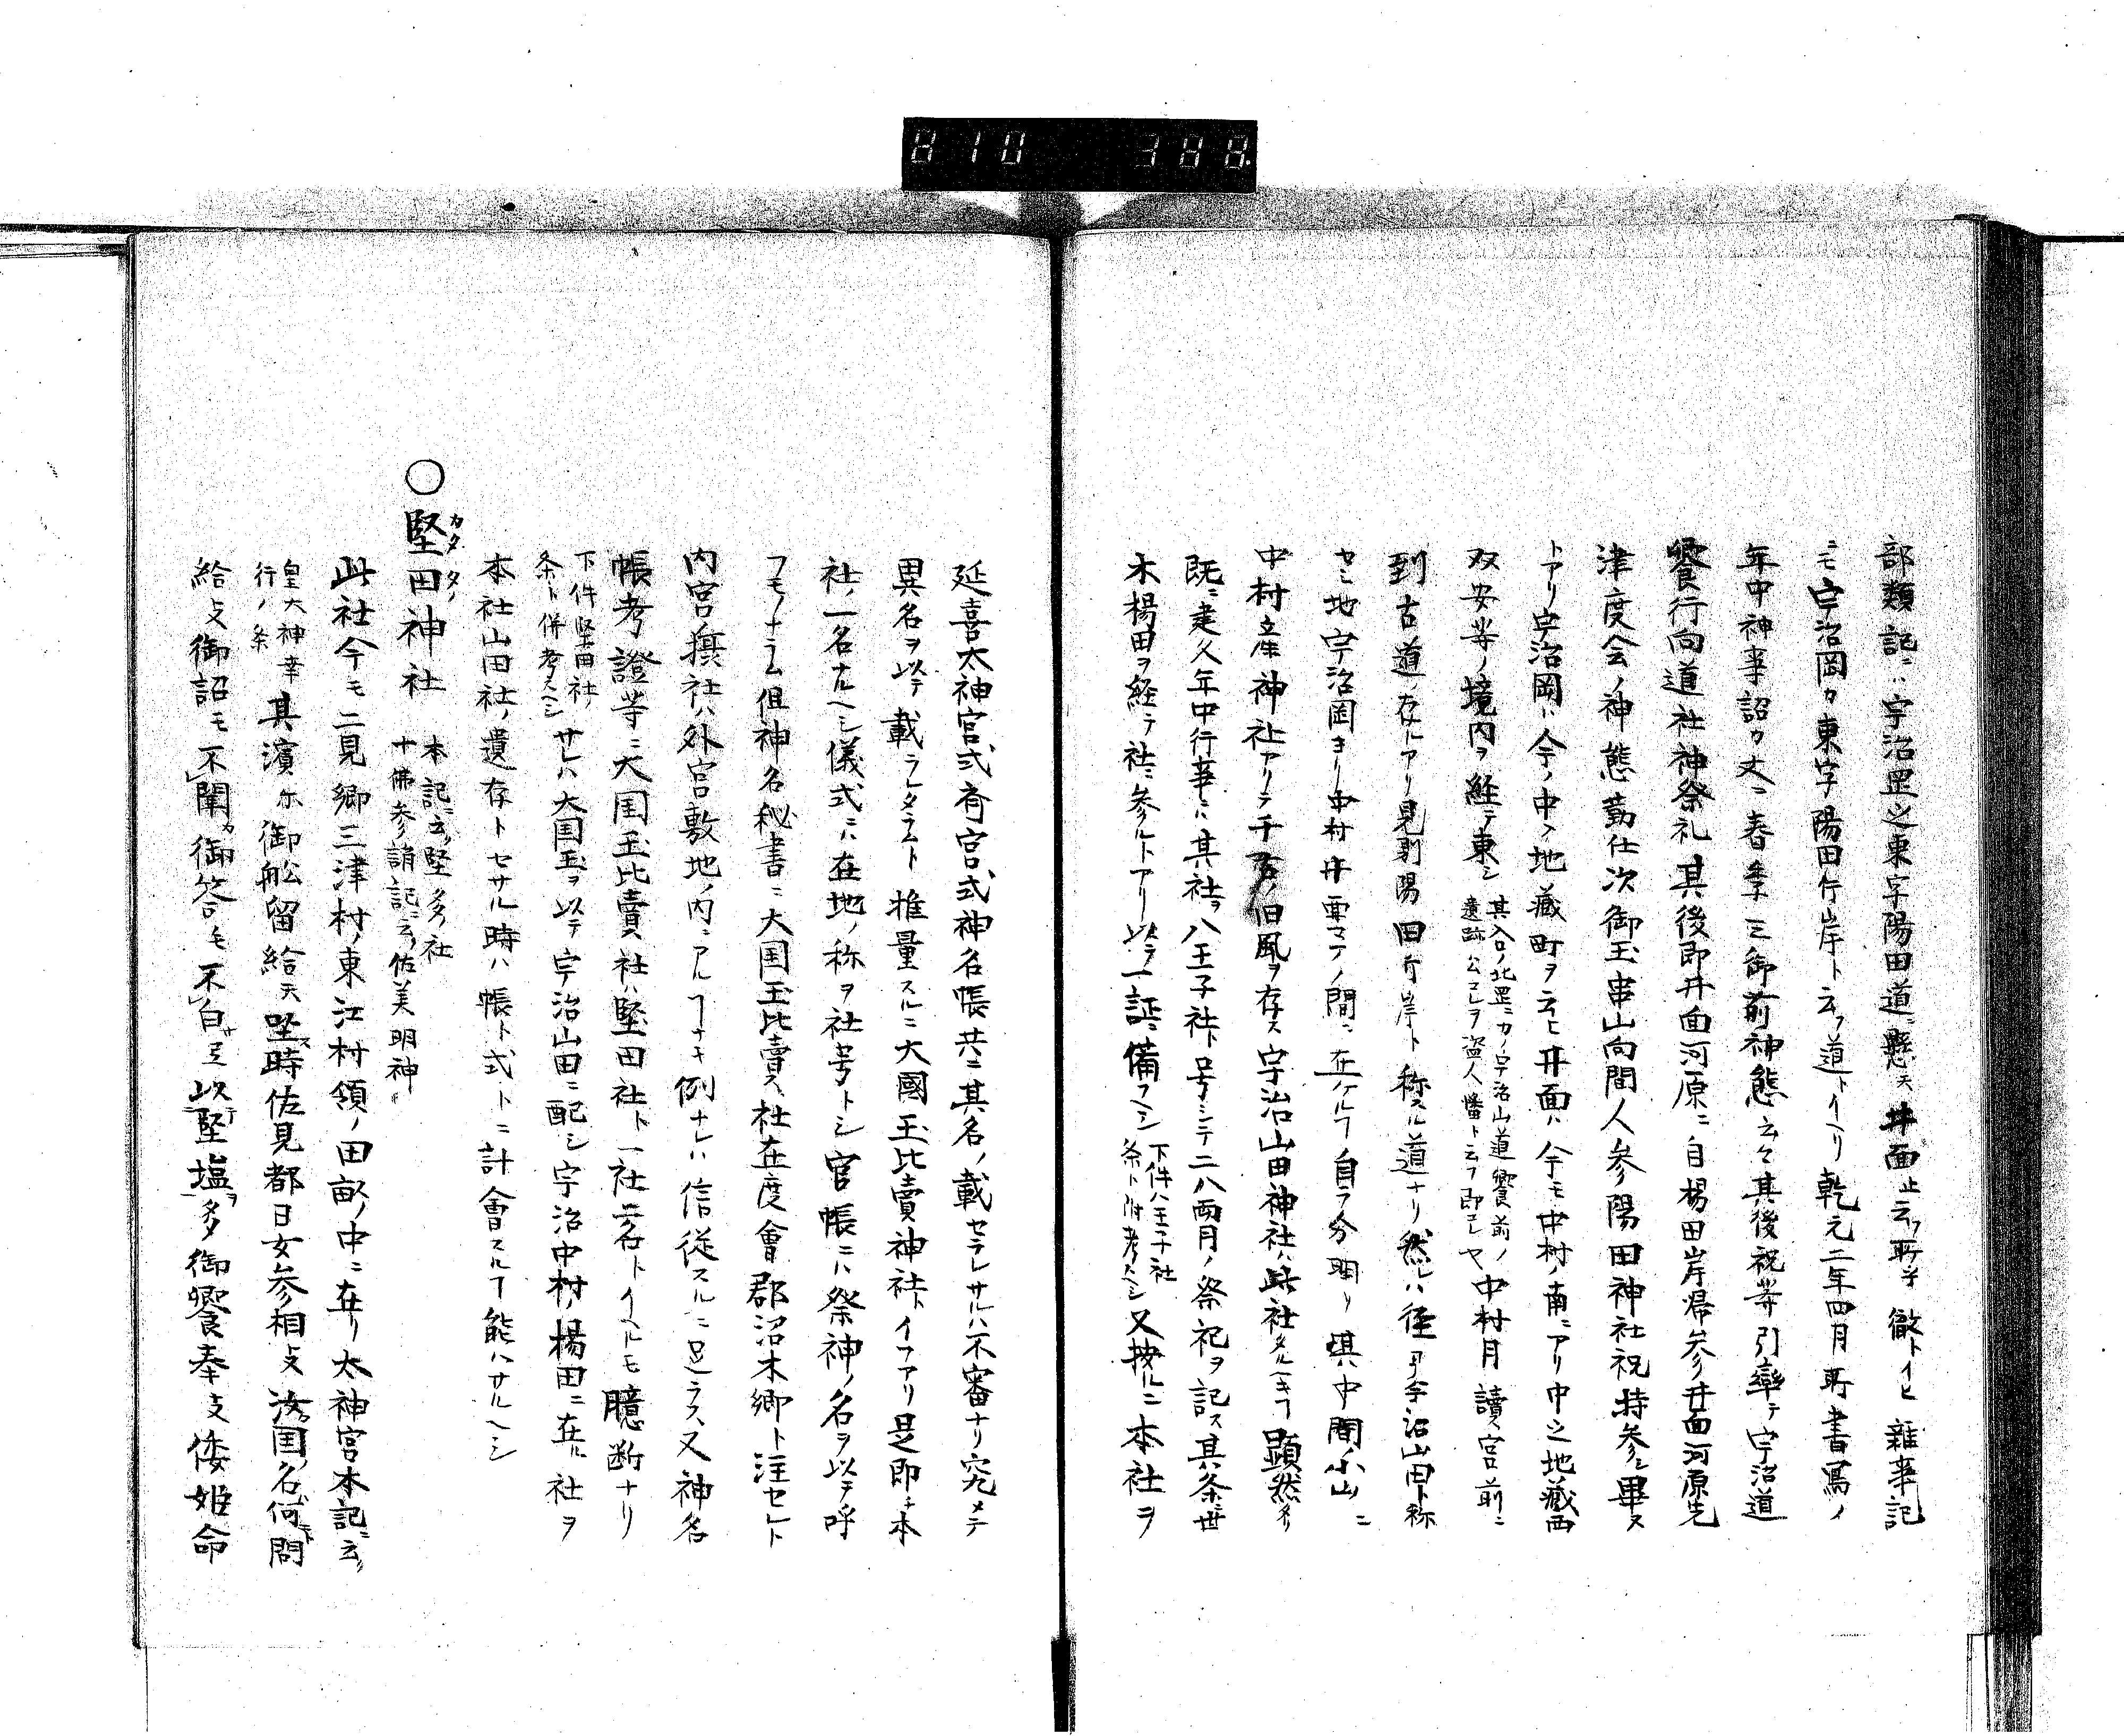 部類記ニハ宇治罡之東字陽田道ニ懸天井面止云フ所ヲ徹トイヒ雜事記
ニモ宇治岡ノ東字陽田行岸ト云フ道トイヘリ乾元二年四月所書寫ノ
年中神事詔刀文ニ春季三御前神態云々其後祝等引率テ宇治道
饗行向道社神祭礼其後即井面河原ニ自楊田岸帰参井面河原先
津度会ノ神態勤仕次御玉串山向間人参陽田神社祝持参シ畢ス
トアリ宇治岡ハ今ノ中ノ地藏町ヲ云ヒ井面ハ今モ中村ノ南ニアリ中之地藏西
双安寺ノ境内ヲ経テ東シ
其入口ノ北罡ニカノ宇治山道饗前ノ
遺跡公コレヲ盗人幡ト云フ即コレヤ
中村月讀宮前ニ
到古道ノ存ルアリ是則陽田行岸ト称スル道ナリ然レハ径ヨリ宇治山田ト称
セシ地宇治岡ヨリ中村井面マテノ間ニ在ケルヿ自ラ分明リ其中間ノ小山ニ
中村産神社アリテ千古ノ旧風ヲ存ス宇治山田神社ハ此社タルヘキヿ顕然タリ
既ニ建久年中行事ニハ其社ヲ八王子社ト号シテ二八両月ノ祭祀ヲ記ス其条ニ世
木楊田ヲ経テ社ニ参ルトアリ以テ一証ニ備フヘシ
下件八王子社
条ト附考スヘシ
又按ルニ本社ヲ
延喜太神宮式斎宮式神名帳共ニ其名ノ載セラレサルハ不審ナリ究メテ
異名ヲ以テ載ラレタラムト推量スルニ大國玉比賣神社トイフアリ是即チ本
社ノ一名ナルヘシ儀式ニハ在地ノ称ヲ社号トシ官帳ニハ祭神ノ名ヲ以テ呼
フモノナラム但神名秘書ニ大国玉比賣社在度會郡沼木郷ト注セレト
内宮ノ攝社ハ外宮敷地ノ内ニアルヿナキ例ナレハ信従スルニ足ラス又神名
帳考證等ニ大国玉比賣社ハ堅田社ト一社二名トイヘルモ臆断ナリ
下件堅田社ノ
条ト併考スヘシ
サレハ大国玉ヲ以テ宇治山田ニ配シ宇治中村楊田ニ在ル社ヲ
本社山田社ノ遺存トセサル時ハ帳ト式トニ計會スルヿ能ハサルヘシ
○堅田神社
カタタノ
本記ニ云ク堅多社
十佛参詣記ニ云ク佐美明神
此社今モ二見郷三津村ノ東江村領ノ田畝ノ中ニ在リ太神宮本記ニ云ク
皇大神幸
行ノ条
其濱尓御舩留給天坐時佐見都日女参相支汝国名何問
給支御詔モ不聞御答モ不白弖以堅塩多御饗奉支倭姫命